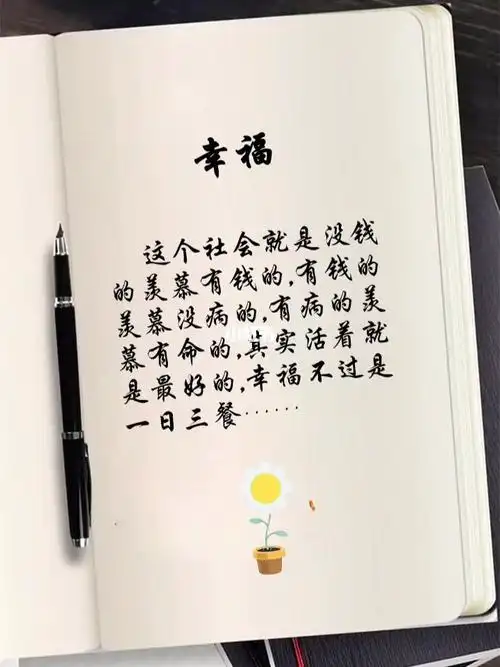 幸福
这个社会就是没钱
的羡慕有钱的,有钱的
羡慕没病的,有病的羡
慕有命的,其实活着就
是最好的,幸福不过是
一日三餐······